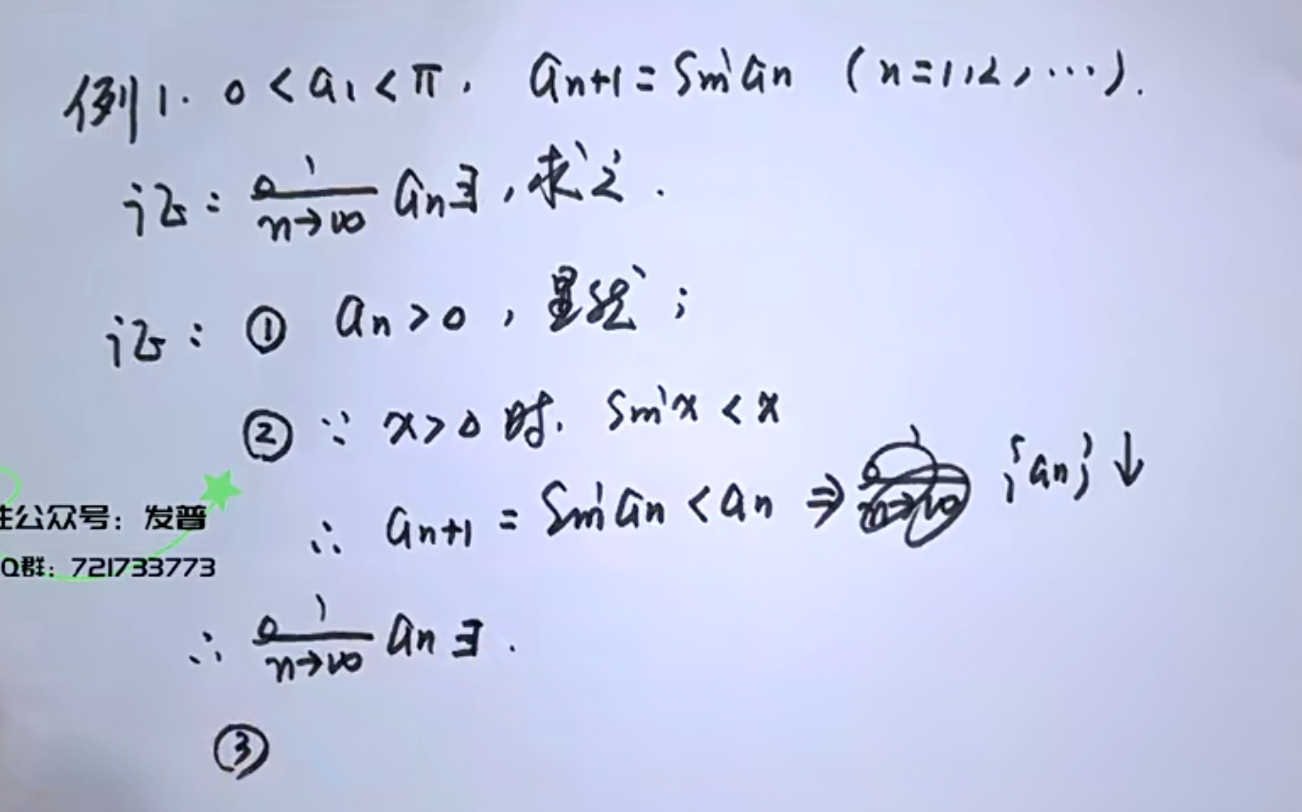 例1. 0 < a₁ < π, aₙ₊₁ = sin aₙ (n=1,2,…).
证: lim n→∞ aₙ∃, 求之.
证: ① aₙ>0, 显然;
② ∵ x>0 时. sin x < x
∴ aₙ₊₁ = sin aₙ < aₙ ⇒ {aₙ}↓
∴ lim n→∞ aₙ∃.
③
公众号: 发普
Q群: 721733773